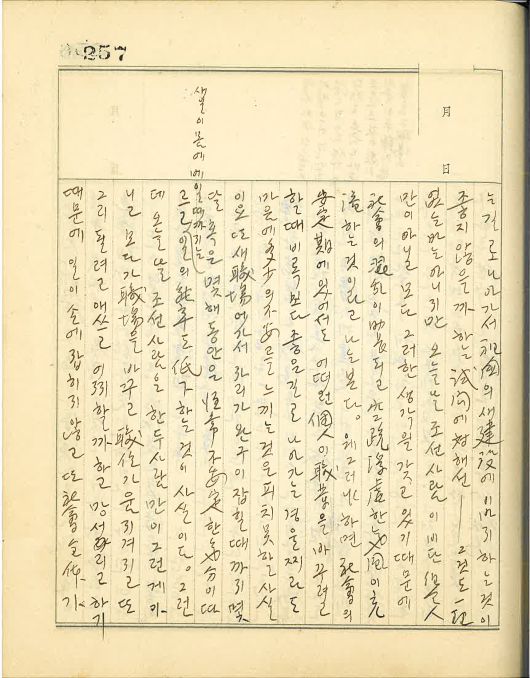 257
月 日
는 길로 나아가서 祖國의 새 建設에 이바지하는 것이
좋지 않을까 하는 試問에 對해선 — 그것도 一理
없는 바는 아니지만 오늘날 조선사람이 비단 個人
만이 아닐 모다 그러한 생각을 갖고 있기 때문에
社會의 混亂이 助長되고 生産 한
하는 것이라고 나는 본다. 왜그러냐하면 社會의
安定期에 있어서도 어떠한 個人이 職業을 바꾸려
할 때 비록 보다 좋은 길로 나아가는 경울찌라도
마음에 多少의 不安을 느끼는 것은 피치 못할 사실
이요 또 새 職場에 가서 자리가 완구이 잡힐 때까지 몇
달 혹은 몇해 동안은 恒常 不安定한 氣分이 따
새 일이 몸에 베일 때까지는
르고 일의 能率도 低下하는 것이 사실이다. 그런
데 오늘날 조선사람은 한두사람만이 그런 게 아
니고 모다가 職場을 바꾸고 職位가 움지겨지고 또
그리 될려고 애쓰고 어찌할까 하고 망서리고 하기
때문에 일이 손에 잡히지 않고 또 社會全体가